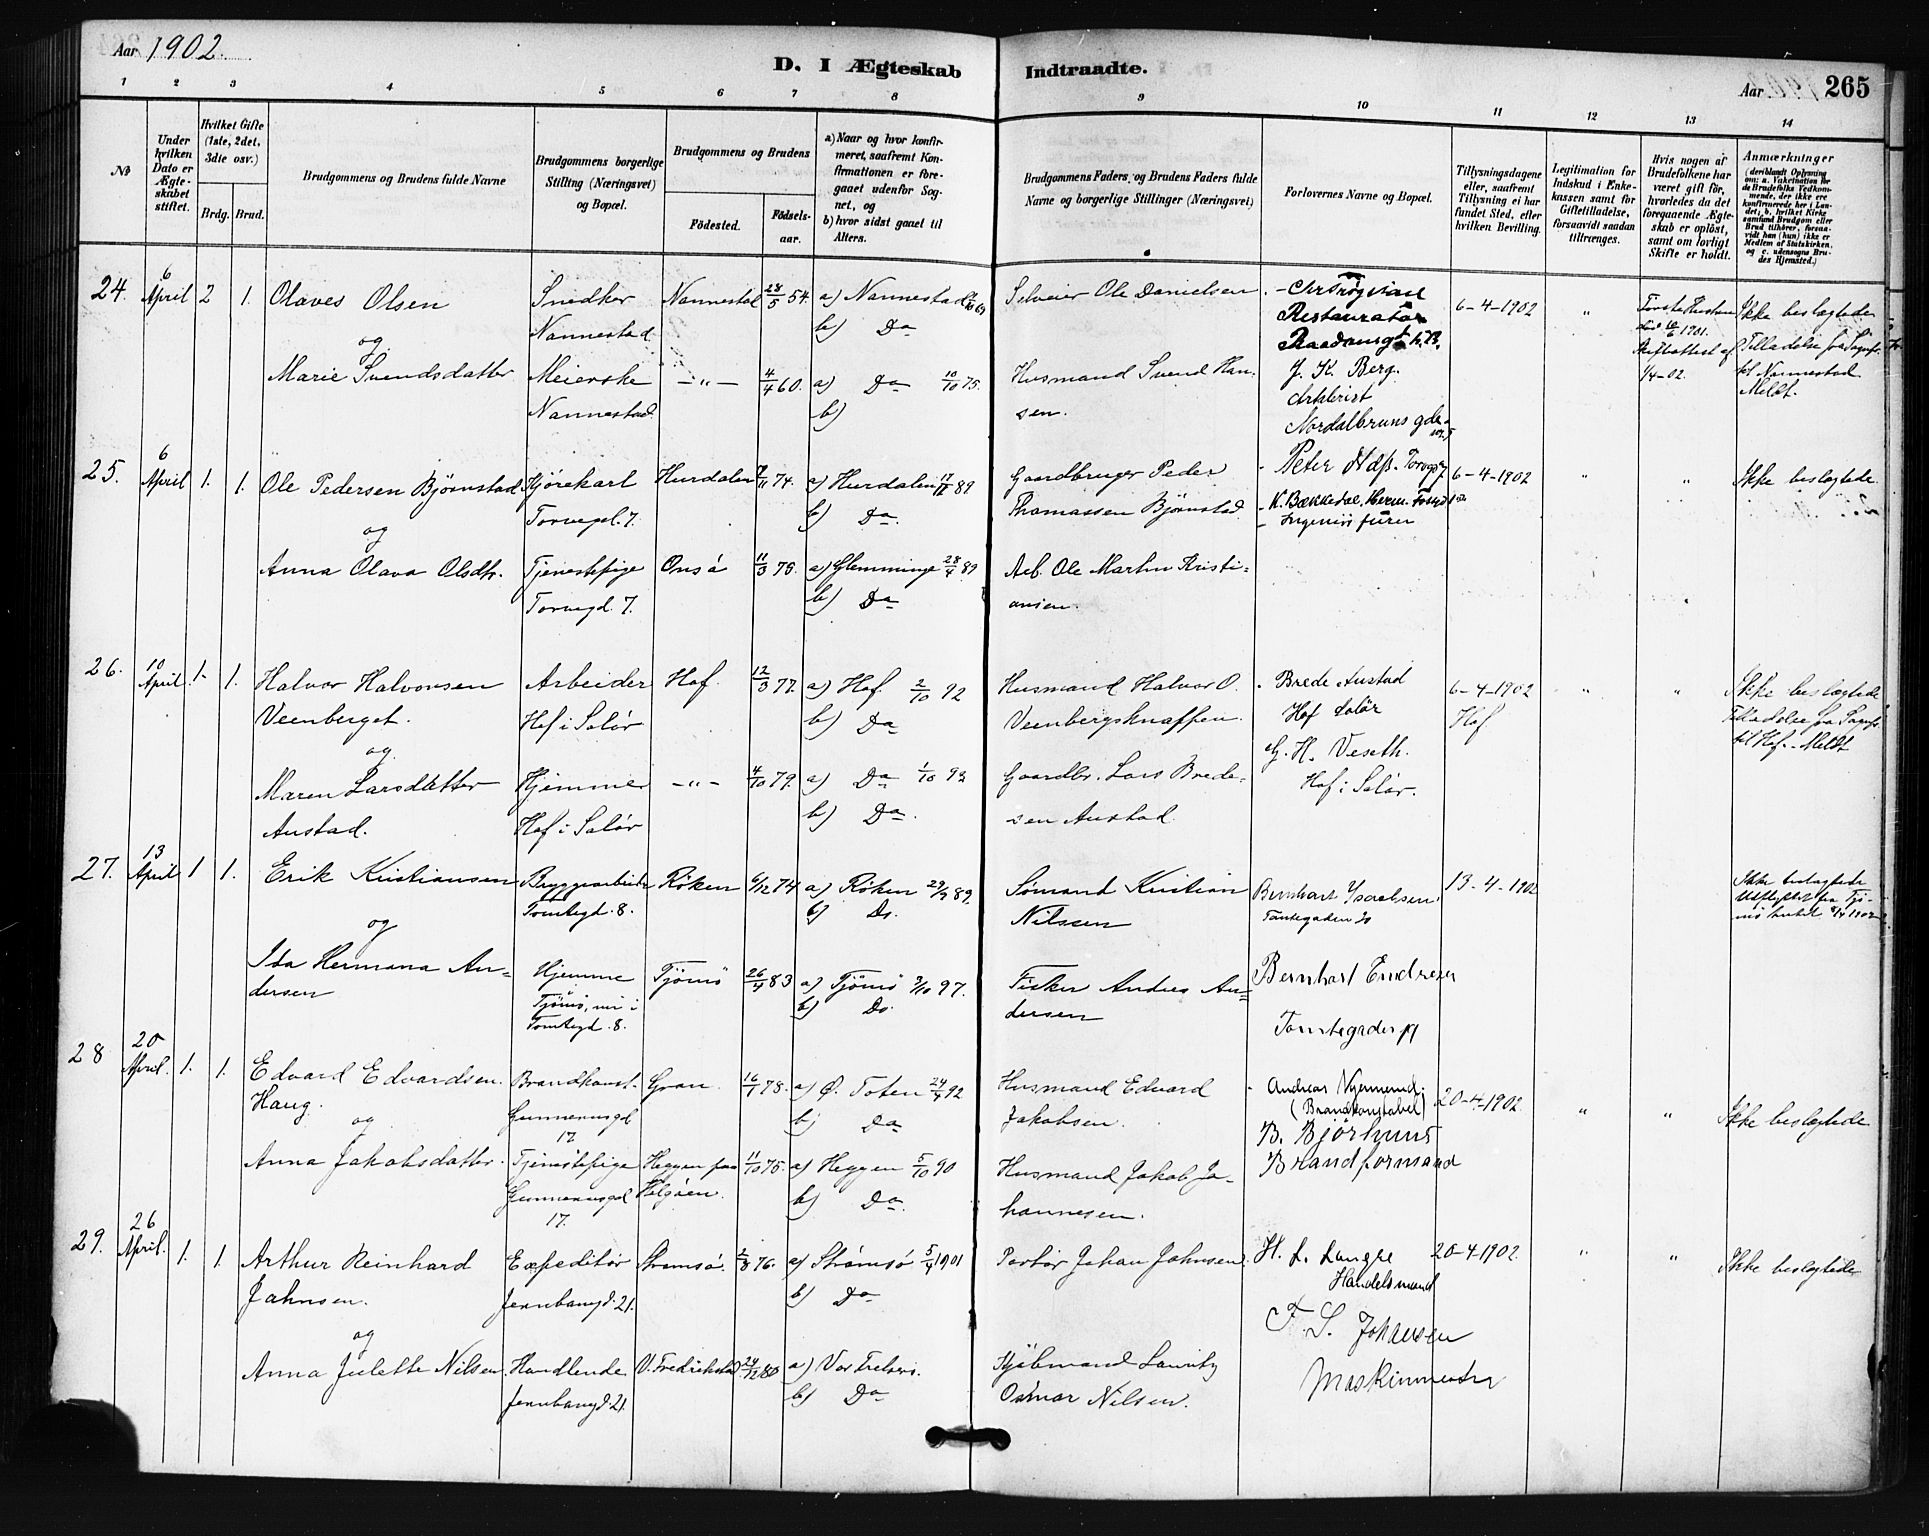 Aar 1902.
D. I Ægteskab Indtraadte.
Aar 265
1 2 3 4 5 6 7 8 9 10 11 12 13 14
No
Under hvilken Dato er Ægteskabet stiftet.
Hvilket Gifte (1ste, 2det, 3die osv.)
Brdg. Brud.
Brudgommens og Brudens fulde Navne
Brudgommens borgerlige Stilling (Næringsvei) og Bopæl.
Brudgommens og Brudens
Födested.
Födselsaar.
a) Naar og hvor konfirmeret, saafremt Konfirmationen er foregaaet udenfor Sognet, og
b) hvor sidst gaaet til Alters.
Brudgommens Faders og Brudens Faders fulde Navne og borgerlige Stillinger (Næringsvei)
Forlovernes Navne og Bopæl.
Tillysningsdagene eller, saafremt Tillysning ei har fundet Sted, efter hvilken Bevilling.
Legitimation for Indskud i Enkekassen samt for Giftetilladelse, forsaavidt saadan tiltrænges.
Hvis nogen af Brudefolkene har været gift för, hvorledes da det foregaaende Ægteskab er oplöst, samt om lovligt Skifte er holdt.
Anmærkninger (deriblandt Oplysning om: a. Vakcination for de Brudefolks Vedkommende, der ikke ere konfirmerede her i Landet; b. hvilket Kirkesamfund Brudgom eller Brud tilhörer, forsaavidt han (hun) ikke er Medlem af Statskirken, og c. udensogns Brudes Hjemsted.)
24. 6 April 2 1. Olaves Olsen Snedker Nannestad Nannestad 28/5 54. a) Nannestad b) Do Selveier Ole Danielsen Restauratör 6-4-1902 " Ikke beslægtede
og
Marie Svendsdatter Meierske Nannestad -"- 4/4 60. a) Do 10/10 75. b) Husmand Svend Hansen. J. K. Berg. Nordalbruns gde 1/4-02. til Nannestad Meldt.
25. 6 April 1. 1. Ole Pedersen Bjørnstad Kjørekarl Torvegd. 7. Hurdalen 74. a) Hurdalen 89 b) Do. Gaardbruger Peder Thomassen Bjørnstad. Peter K. Bækkedal. 6-4-1902 " " Ikke beslægtede.
og
Anna Olava Olsdtr. Tjenestepige Torvegd. 7. Onsö 11/3 75. a) Glemminge 28/4 89 b) Do Arb. Ole Martin Kristiansen.
26. 10 April 1. 1. Halvor Halvorsen Veenberget. Arbeider Hof i Solör Hof. 12/3 77. a) Hof. 2/10 92 b) Do Husmand Halvor O. Veenbergsknappen. Brede Austad Hof Solör 6-4-1902 Hof " " Ikke beslægtede til Hof. Meldt
og
Maren Larsdatter Austad. Hjemme Hof i Solör -"- 4/10 79. a) Do 1/10 93 b) Do. Gaardbr. Lars Bredesen Austad G. H. Veseth. Hof i Solör.
27. 13 April 1 1. Erik Kristiansen Bryggearbeider Tomtegd. 8. Röken 6/12 74 a) Röken 29/9 89. b) Do. Sömand Kristian Nilsen Bernhart Isaaksen Tomtegaden 20 13-4-1902 Ikke beslægtede
og
Ida Hermana Andersen Hjemme Tjömö, nu i Tomtegd. 8. Tjömö 26/4 83 a) Tjömö 3/10 97. b) Do. Fisker Andres Andersen Bernhart Endresen Tomtegaden 19
28 20 April. 1. 1. Edvard Edvardsen Haug. Brandkonst. Gunnerusgd 17 Gran. 16/1 78. a) Ø. Toten 24/4 92 b) Do Husmand Edvard Jakobsen. Andreas (Brandkonstabel) B. Björhuus Brandformand 20-4-1902. " " Ikke beslægtede
og
Anna Jakobsdatter. Tjenestepige Gunnerusgd 17. Heggen paa Helgöen. 11/10 75. a) Heggen 5/10 90 b) Do. Husmand Jakob Johannesen.
29. 26 April. 1. 1. Arthur Reinhard Jahnsen. Expeditör Jernbangd. 21. Strömsö. 2/8 76. a) Strömsö 5/4 1901 b) Do Portör Johan Jahnsen H. L. Langhe Handelsmand 20-4-1902. " " Ikke beslægtede
og
Anna Julette Nilsen Handlende Jernbangd. 21. V. Fredrikstad 24/12 80 a) Vor Frelsers. b) Do Kjöbmand Lauritz Osmar Nilsen. F. S. Johansen Maskinmester